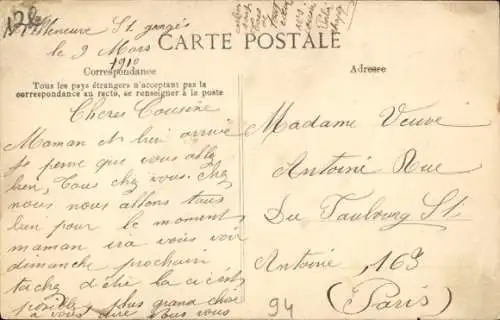 12e
Villeneuve St. gorges
le 9 Mars
1910
CARTE POSTALE
Correspondance
Adresse
Tous les pays étrangers n'acceptent pas la
correspondance au recto, se renseigner à la poste
Cheres Cousine
Maman et bien arrivé
Je pense que vous allez
bien, tous chez vous. Chez
nous nous allons tous
bien pour le moment
maman ira vous voir
dimanche prochain
tachez d'être la ci c'est
posible plus grand chose
a vous dire vous
Madame Veuve
Antoine Rue
Du Faubourg St
Antoine 163
(Paris)
94